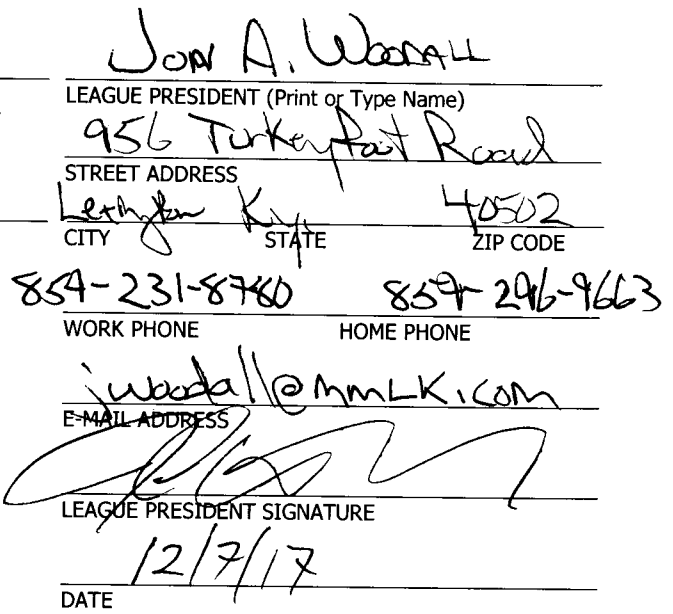 Jon A. Woodall
LEAGUE PRESIDENT (Print or Type Name)
956 Turkeyfoot Road
STREET ADDRESS
Lexington Ky. 40502
CITY STATE ZIP CODE
859-231-8780 859-296-9663
WORK PHONE HOME PHONE
jwoodall@mmlk.com
E-MAIL ADDRESS
LEAGUE PRESIDENT SIGNATURE
12/7/17
DATE